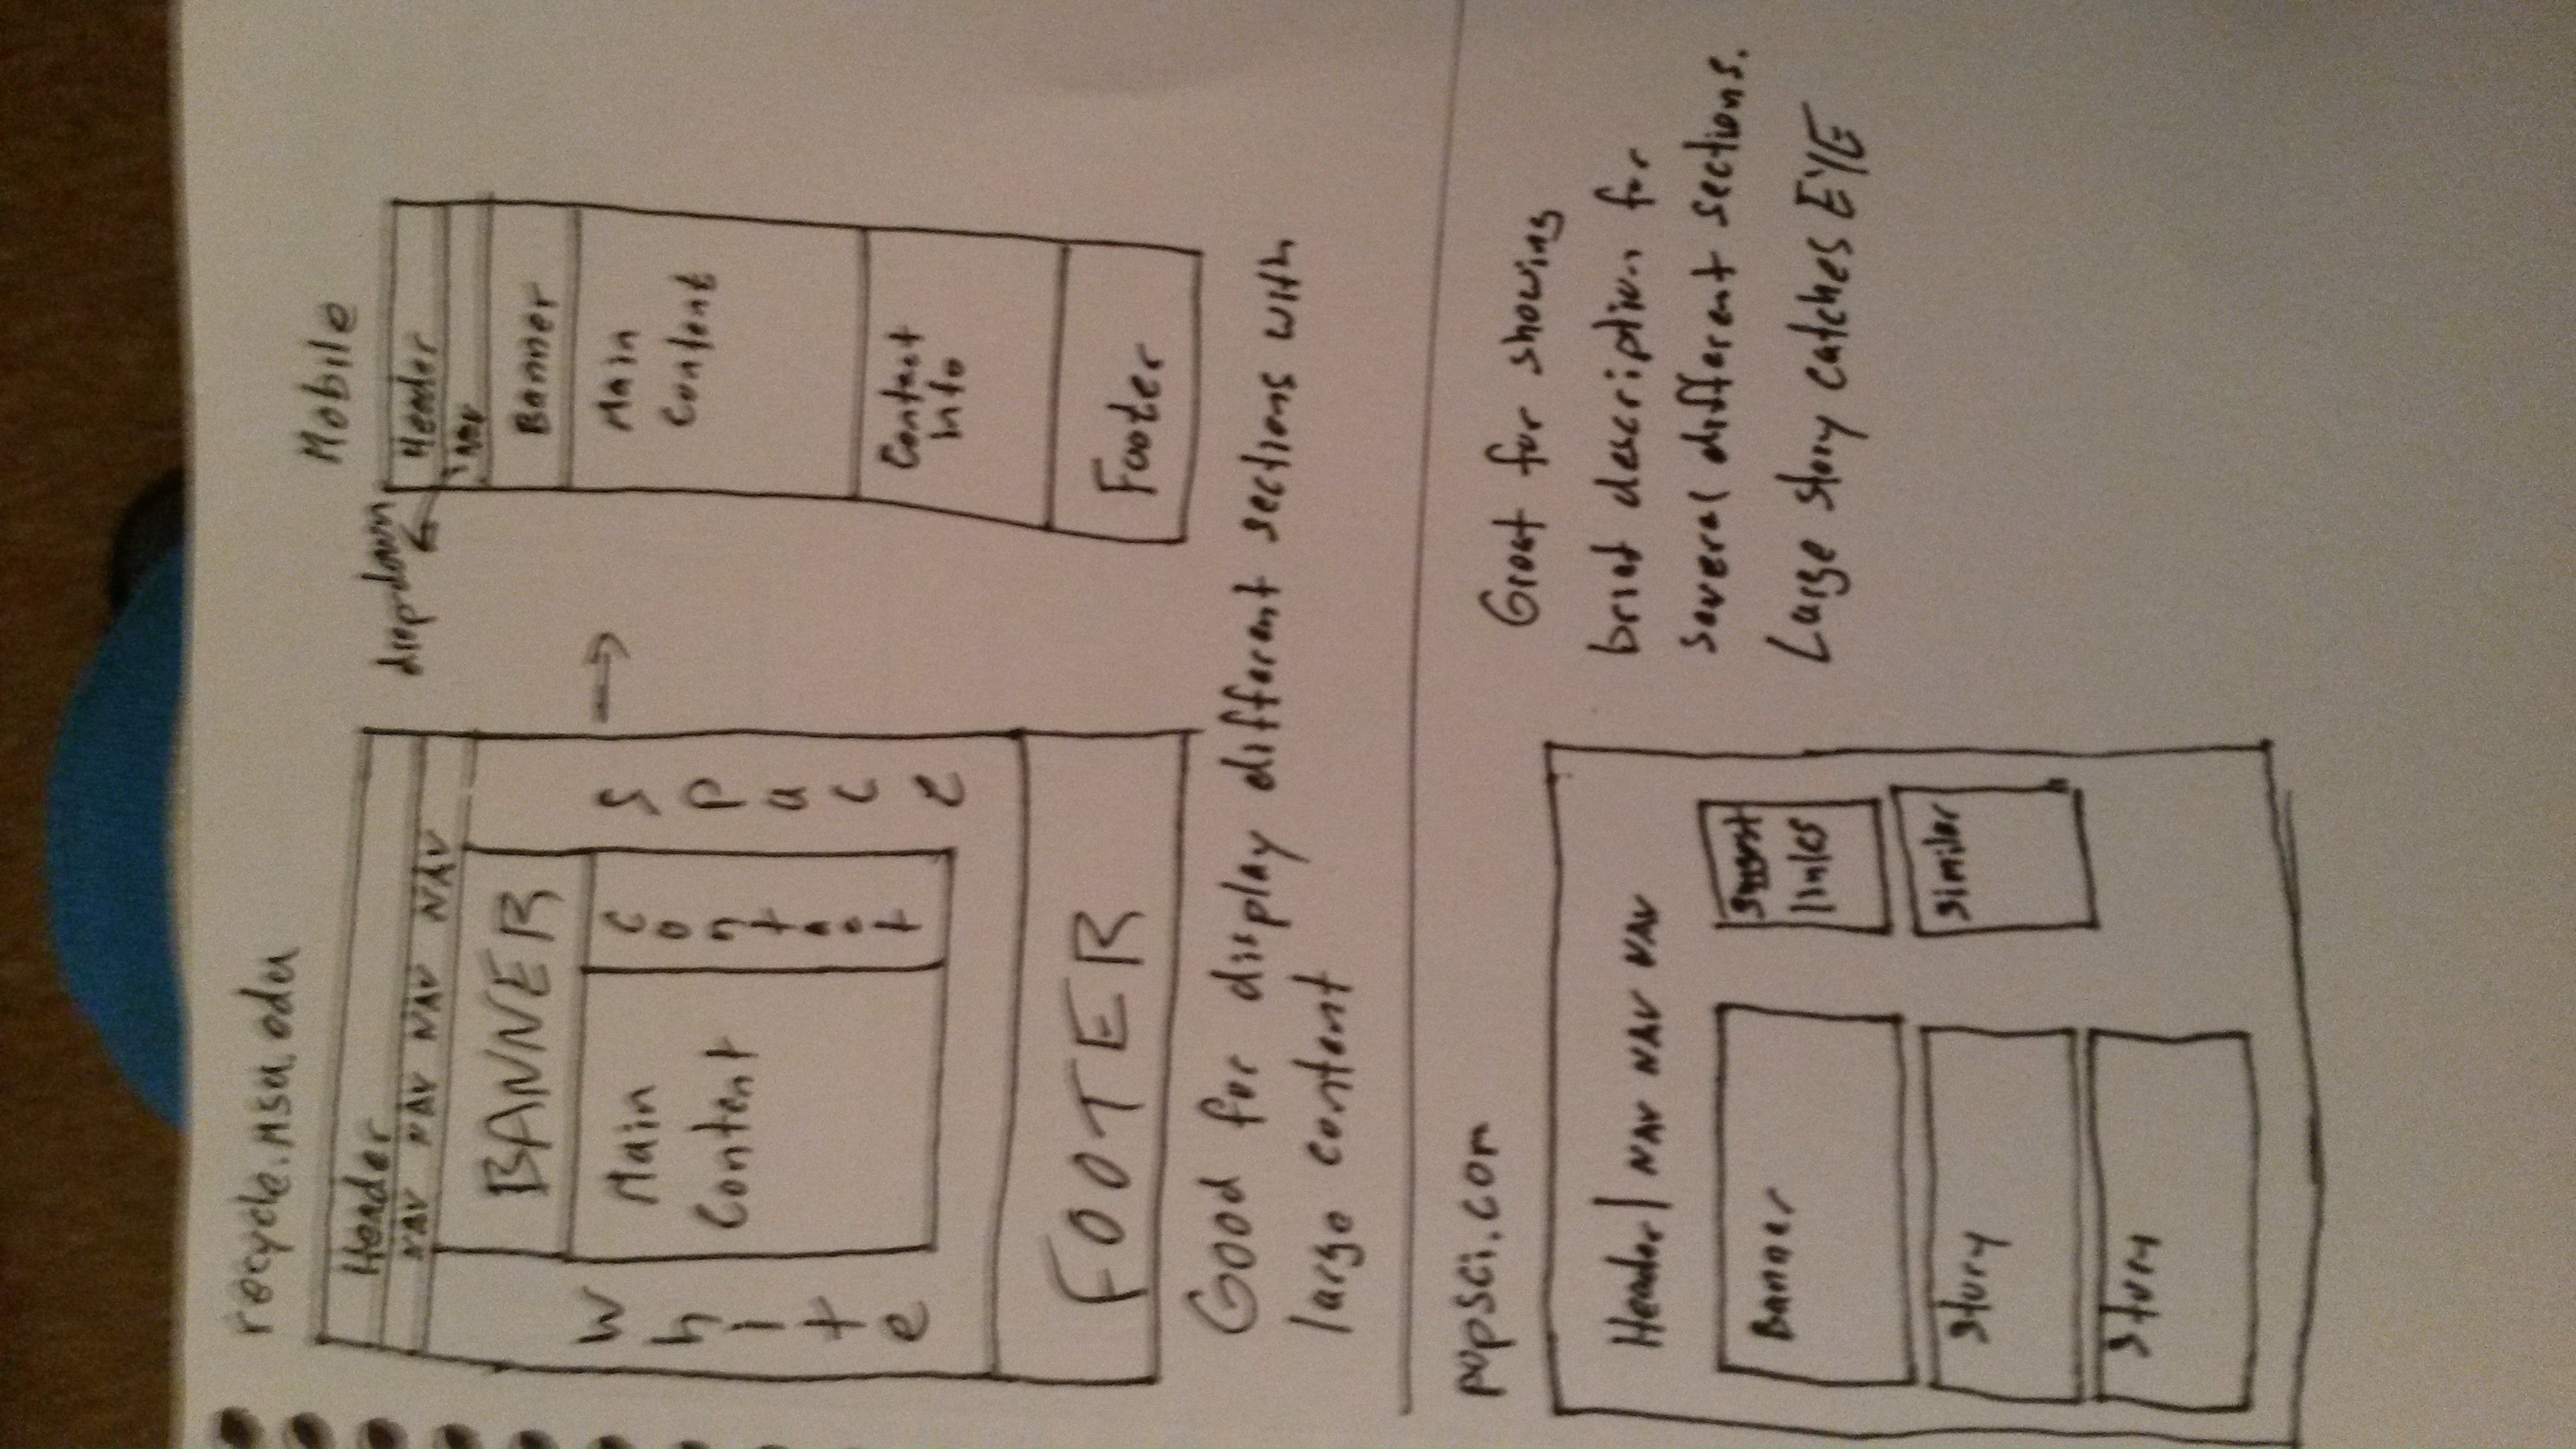 recycle.msu.edu
Header
NAV NAV NAV NAV
BANNER
White
Main
Content
Contact
Space
FOOTER
Mobile
drop-down
Header
NAV
Banner
Main
Content
Contact
Info
Footer
Good for display different sections with
large content
popsci.com
Header| NAV NAV NAV
Banner
Story
Story
suggest
links
similar
Great for showing
brief description for
several different sections.
Large story catches EYE